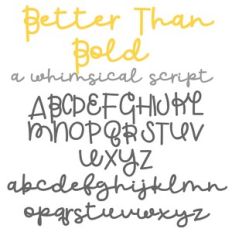 Better Than
Bold
a whimsical script
ABCDEFGHIJKL
MNOPQRSTUV
WXYZ
abcdefghijklmn
opqrstuvwxyz